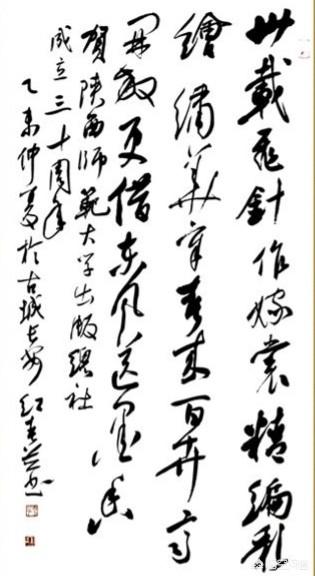 卅載飛針作嫁裳精編彩
繪繡華章春來百卉齊
開放更借東風送墨香
賀陕西师範大学出版總社
成立三十周年
乙未仲夏於古城长安